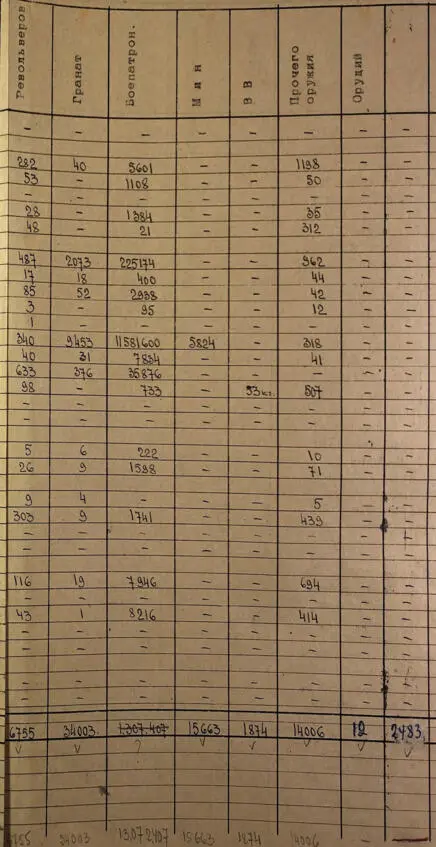 Револьверов Гранат Боепатрон. Мин ВВ Прочего оружия Орудий
— — — — — — — —
282 40 5601 — — 1198 — —
53 — 1108 — — 50 — —
— — — — — — — —
28 — 1384 — — 35 — —
48 — 21 — — 312 — —
487 2073 225174 — — 962 — —
17 18 400 — — 44 — —
85 52 2938 — — 42 — —
3 — 95 — — 12 — —
1 — — — — — — —
340 9453 11581600 5824 — 318 — —
40 31 7834 — — 41 — —
633 376 35876 — — — — —
98 — 733 — 53кг. 507 — —
— — — — — — — —
— — — — — — — —
5 6 222 — — 10 — —
26 9 1598 — — 71 — —
9 4 — — — 5 — —
303 9 1741 — — 439 — —
— — — — — — — —
— — — — — — — —
116 19 7946 — — 694 — —
— — — — — — — —
43 1 8216 — — 414 — —
— — — — — — — —
— — — — — — — —
— — — — — — — —
— — — — — — — —
6755 34003 1.307.407 15663 1874 14006 12 2483
34003 13072407 15663 1874 14006 —